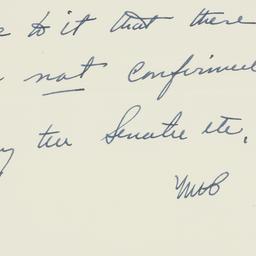 to it that there
not confirmed
the Senate etc.